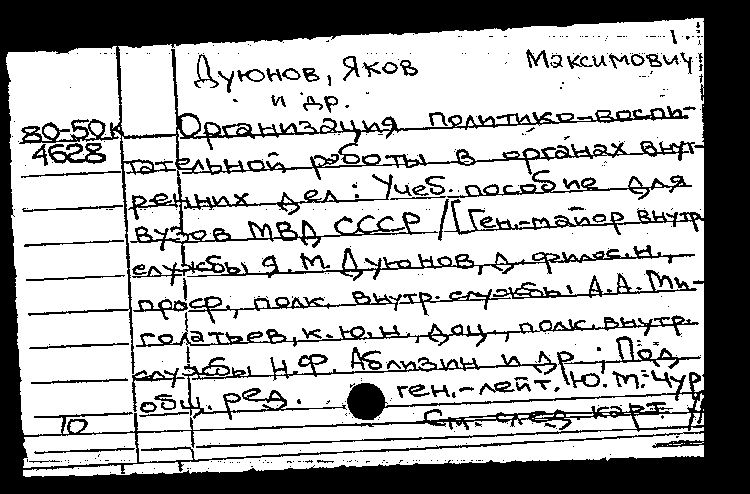 1.
Дуюнов, Яков Максимович
и др.
80-50к Организация политико-воспи-
4628 тательной работы в органах внут-
ренних дел: Учеб. пособие для
вузов МВД СССР /[Ген.-майор внутр.
службы Я.М. Дуюнов, д. филос. н.,
проф., полк. внутр. службы А.А. Ми-
голатьев, к.ю.н., доц., полк. внутр.
службы Н.Ф. Аблизин и др.; Под
общ. ред. ген.-лейт. Ю.М. Чур
10 См. след. карт.